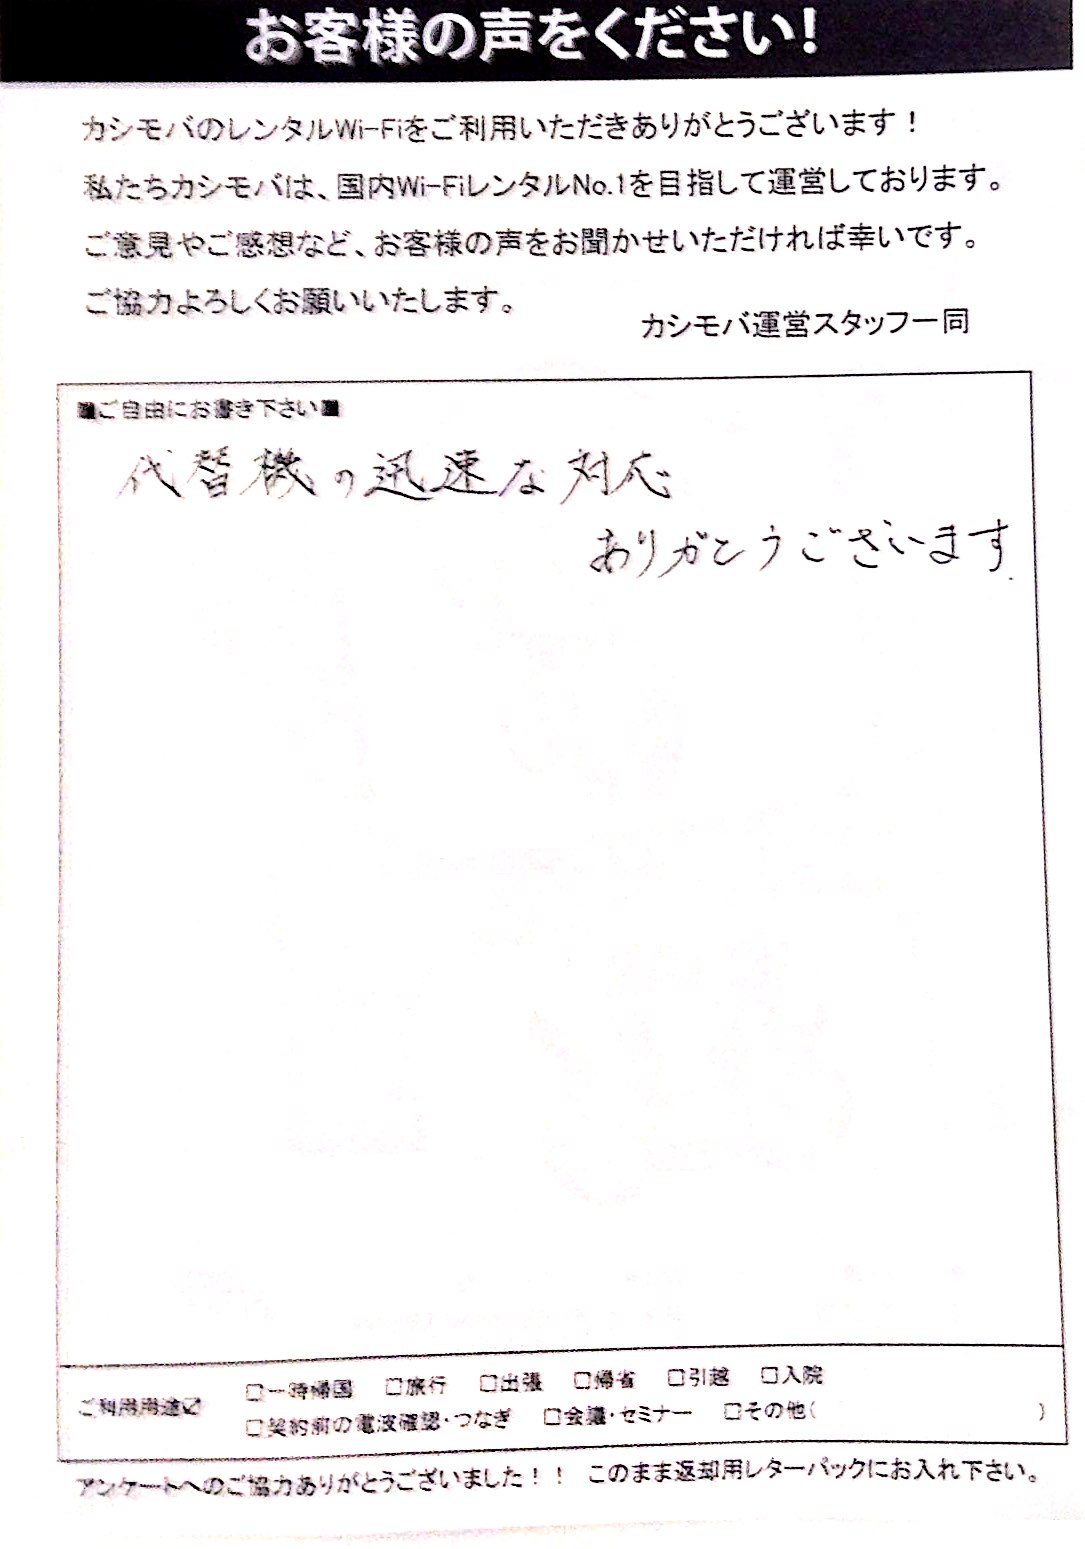 お客様の声をください!
カシモバのレンタルWi-Fiをご利用いただきありがとうございます！
私たちカシモバは、国内Wi-FiレンタルNo.1を目指して運営しております。
ご意見やご感想など、お客様の声をお聞かせいただければ幸いです。
ご協力よろしくお願いいたします。
カシモバ運営スタッフ一同
■ご自由にお書き下さい■
代替機の迅速な対応
ありがとうございます
ご利用用途☑
□一時帰国 □旅行 □出張 □帰省 □引越 □入院
□契約前の電波確認・つなぎ □会議・セミナー □その他( )
アンケートへのご協力ありがとうございました！！ このまま返却用レターパックにお入れ下さい。